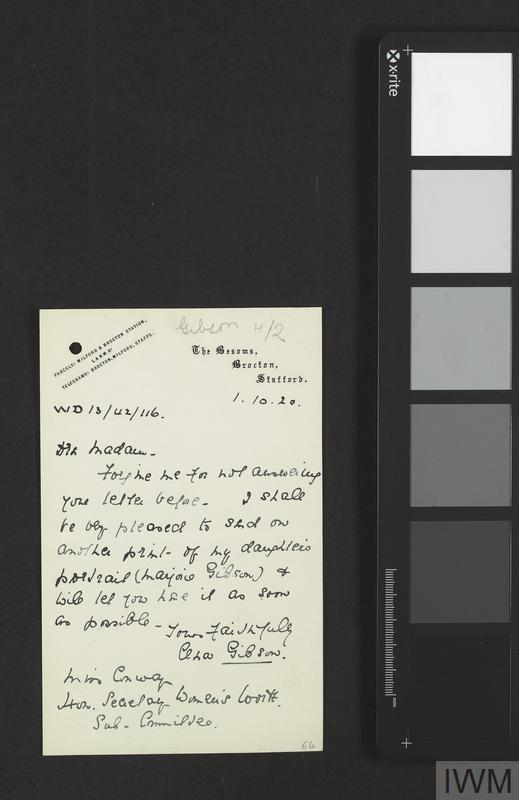 Gibson H/2
PARCELS: MILFORD & BROCTON STATION,
L & N.W. RY
TELEGRAMS: BROCTON, MILFORD, STAFFS.
The Besoms,
Brocton,
Stafford.
1.10.20.
WD 13/42/116.
Dear Madam -
Forgive me for not answering
your letter before - I shall
be very pleased to send on
another print of my daughter's
portrait (Marjorie Gibson) &
will let you have it as soon
as possible -
Yours faithfully
Gibson.
Miss Conway
Hon. Secretary Women's Work
Sub-Committee.
64
x-rite
mm
IWM